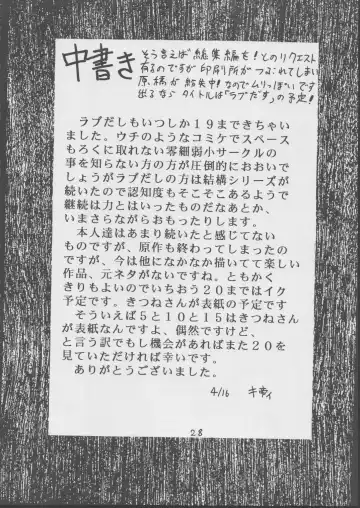 中書き
そう言えば総集編を！とのリクエスト
有るのですが印刷所がつぶれてしまい
原稿が紛失中！なのでムリっぽいです
出るならタイトルは「ラブだす」の予定！
ラブだしもいつしか１９まできちゃい
ました。ウチのようなコミケでスペース
もろくに取れない零細弱小サークルの
事を知らない方の方が圧倒的におおいで
しょうがラブだしの方は結構シリーズが
続いたので認知度もそこそこあるようで
継続は力とはいったものだなあとか、
いまさらながらおもったりします。
本人達はあまり続いたと感じてない
ものですが、原作も終わってしまったの
ですが、今は他になかなか描いてて楽しい
作品、元ネタがないですね。ともかく
きりもよいのでいちおう２０まではイク
予定です。きつねさんが表紙の予定です
そういえば５と１０と１５はきつねさん
が表紙なんですよ、偶然ですけど、
と言う訳でもし機会があればまた２０を
見ていただければ幸いです。
ありがとうございました。
4/16
28